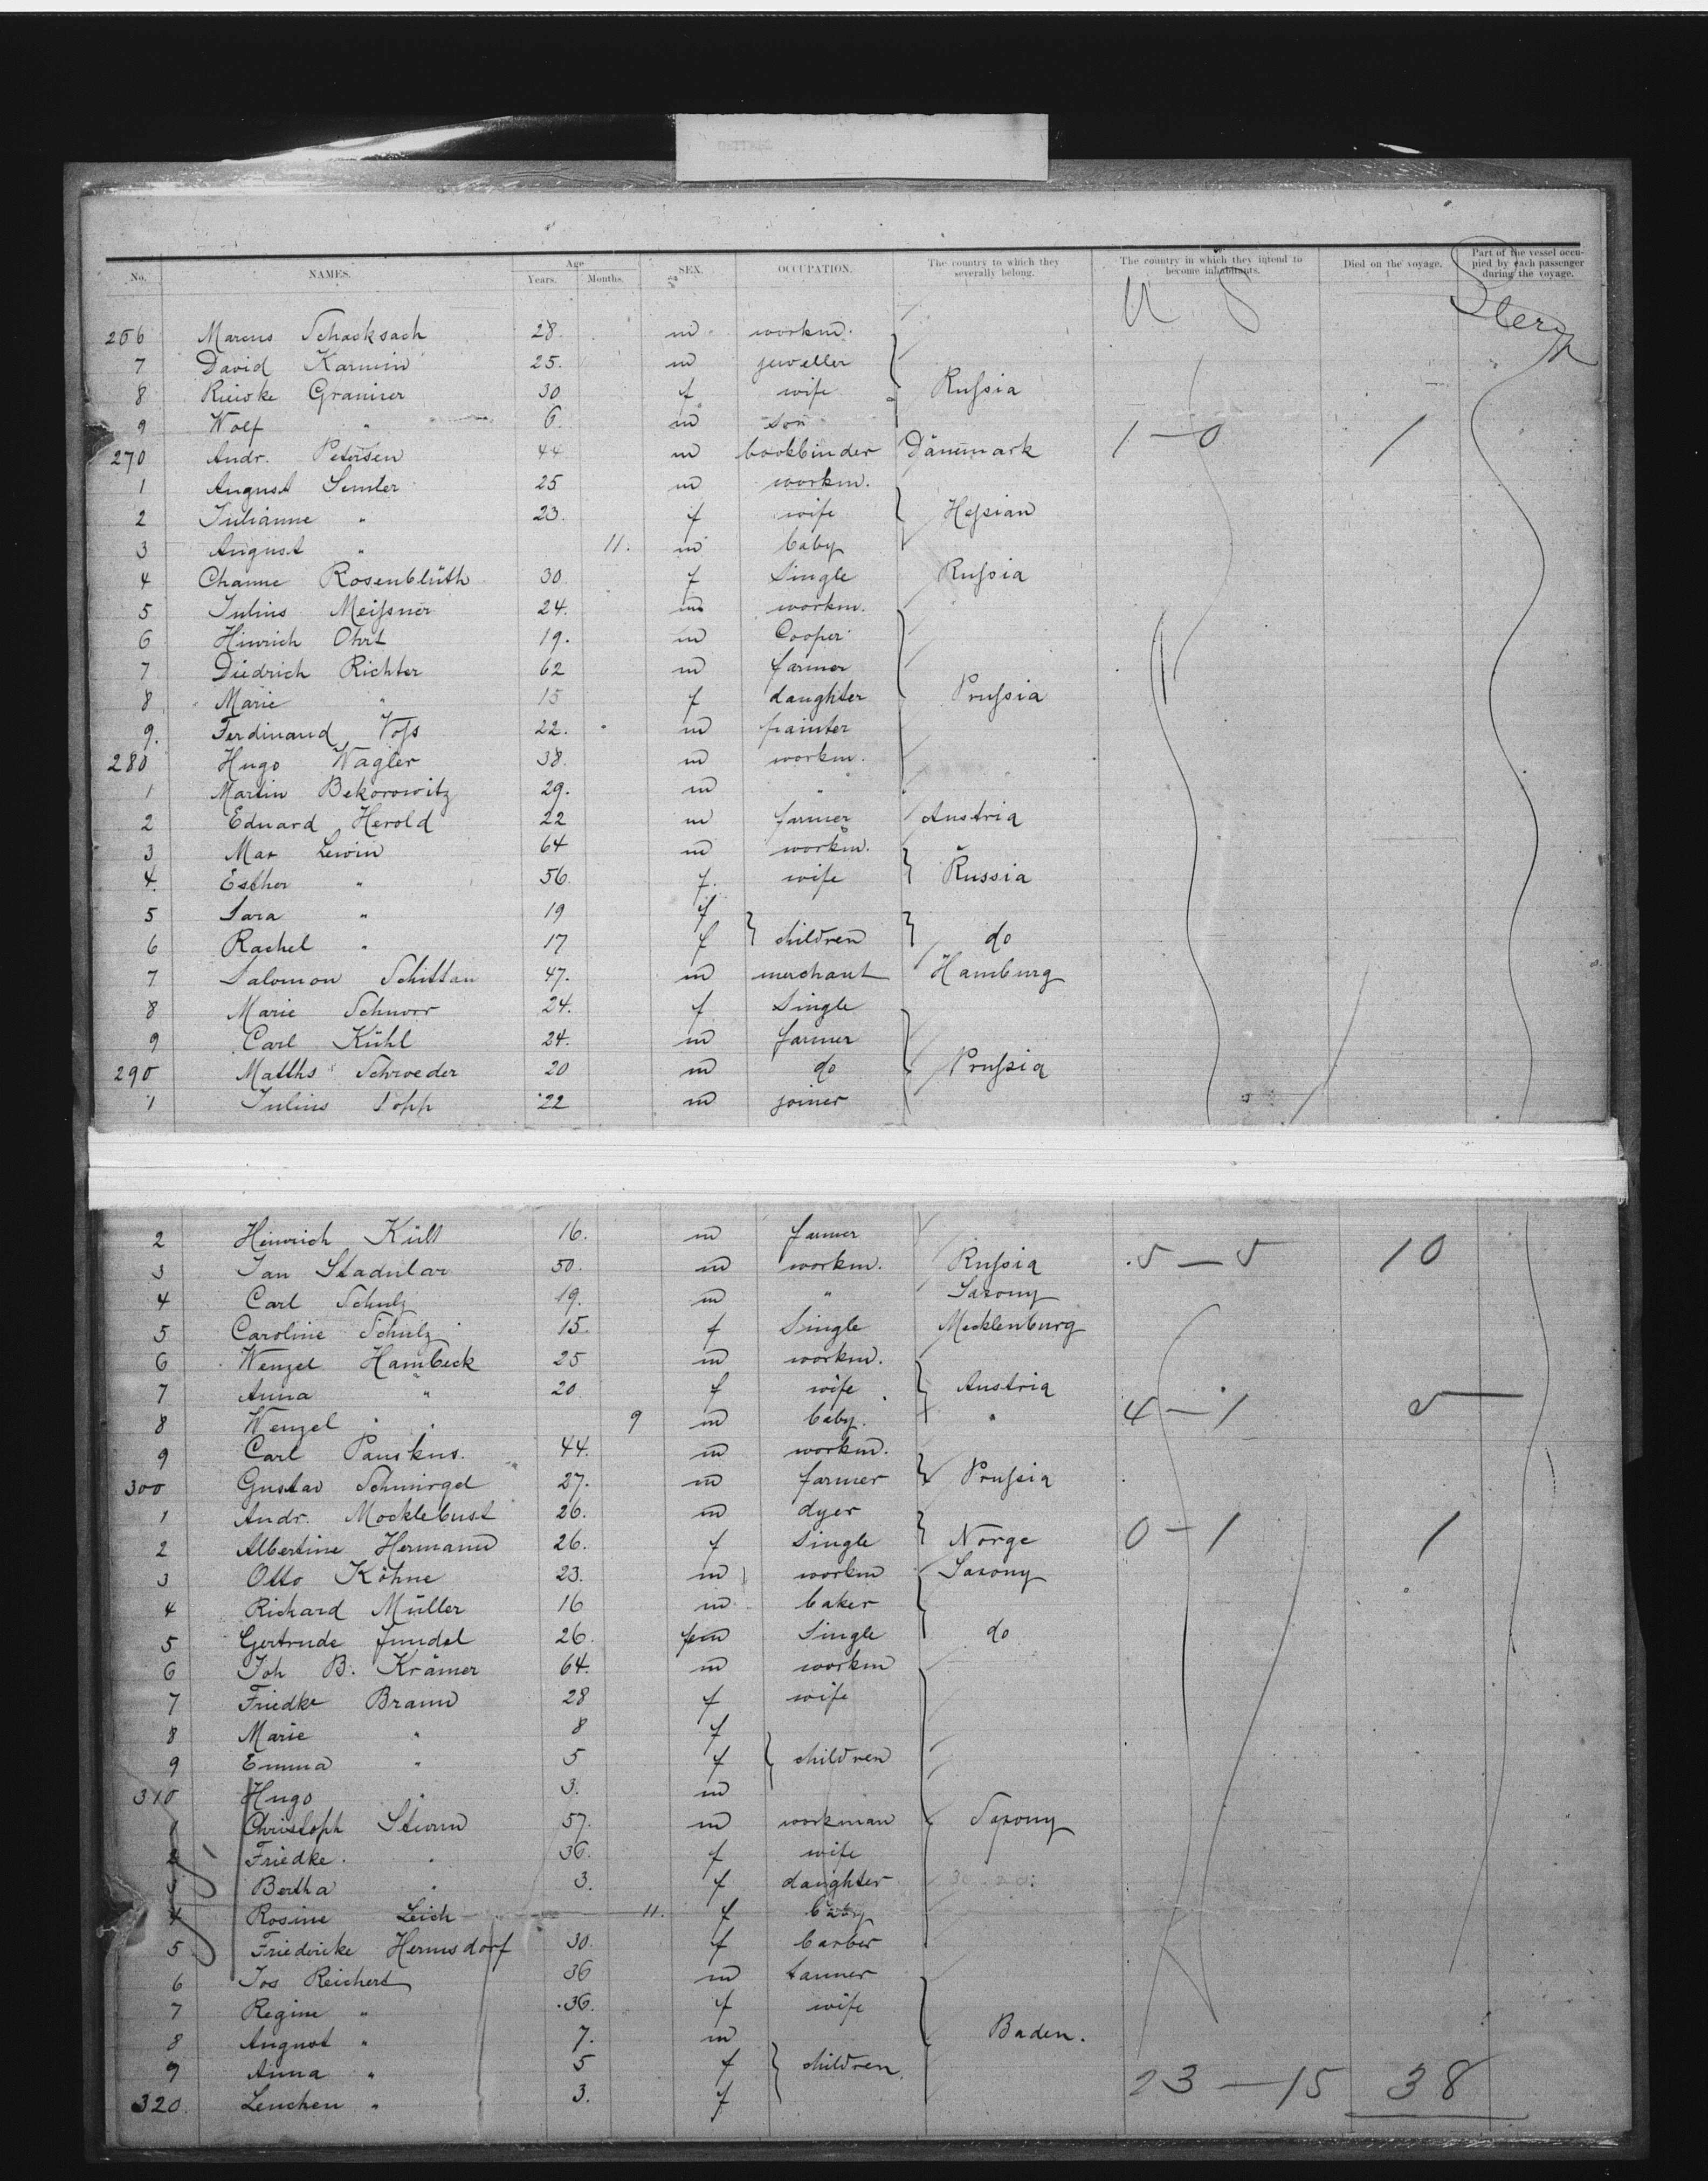 No. NAMES. Age Years. Months. SEX. OCCUPATION. The country to which they severally belong. The country in which they intend to become inhabitants. Died on the voyage. Part of the vessel occupied by each passenger during the voyage.
U S
266 Marcus Schacksach 28. m workm.
7 David Karmin 25. m jeweller
8 Riewke 30 f wife Rußia
9 Wolf " 6. m son
270 Andr. Petersen 44 m bookbinder Dänemark 1 — 0 1
1 August Semler 25 m workm.
2 Julianne " 23. f wife Heßian
3 August " 11. m baby
4 Channe Rosenblüth 30. f Single Rußia
5 Julius Meißner 24. m workm.
6 Hinrich Ohrt 19. m Cooper
7 Diedrich Richter 62 m farmer
8 Marie " 15 f daughter Prußia
9. Ferdinand Voß 22. m painter
280 Hugo Wagler 38. m workm.
1 Martin Bekorowitz 29. m "
2 Eduard Herold 22 m farmer Austria
3 Max Lewin 64 m workm.
4. Esther " 56. f. wife Russia
5 Sara " 19 f
6 Rachel " 17 f children do
7 Salomon Schittan 47. m merchant Hamburg
8 Marie Schnorr 24. f Single
9 Carl Kühl 24. m farmer
290 Matths Schroeder 20 m do Prußia
1 Julius Popp 22 m joiner
2 Heinrich Küll 16. m farmer
3 Jan Stadular 50. m workm. Rußia 5 — 5 10
4 Carl Schulz 19. m " Saxony
5 Caroline Schulz 15. f Single Mecklenburg
6 Wenzel Hambeck 25 m workm.
7 Anna " 20. f wife Austria
8 Wenzel " 9 m baby. " 4 — 1 5
9 Carl Pauskus. 44. m workm.
300 Gustav Schmirgel 27. m farmer Prußia
1 Andr. Mocklebust 26. m dyer
2 Albertine Hermann 26. f Single Norge 0 — 1 1
3 Otto Köhne 23. m workm Saxony
4 Richard Müller 16 m baker
5 Gertrude 26. Single do
6 Joh B. Krämer 64. m workm
7 Friedke Braun 28 f wife
8 Marie " 8 f
9 Emma " 5 f children
310 Hugo " 3. m
1 Christoph Sturm 57. m workman Saxony
2 Friedke. " 36. f wife
3 Bertha " 3. f daughter
4 Rosine Leich 11. f baby
5 Friedericke Hermsdorf 30. f barber
6 Jos Reichert 36 m tanner
7 Regine " 36. f wife
8 August " 7. m Baden.
9 Anna " 5 f children
320. Lenchen " 3. f 23 — 15 38